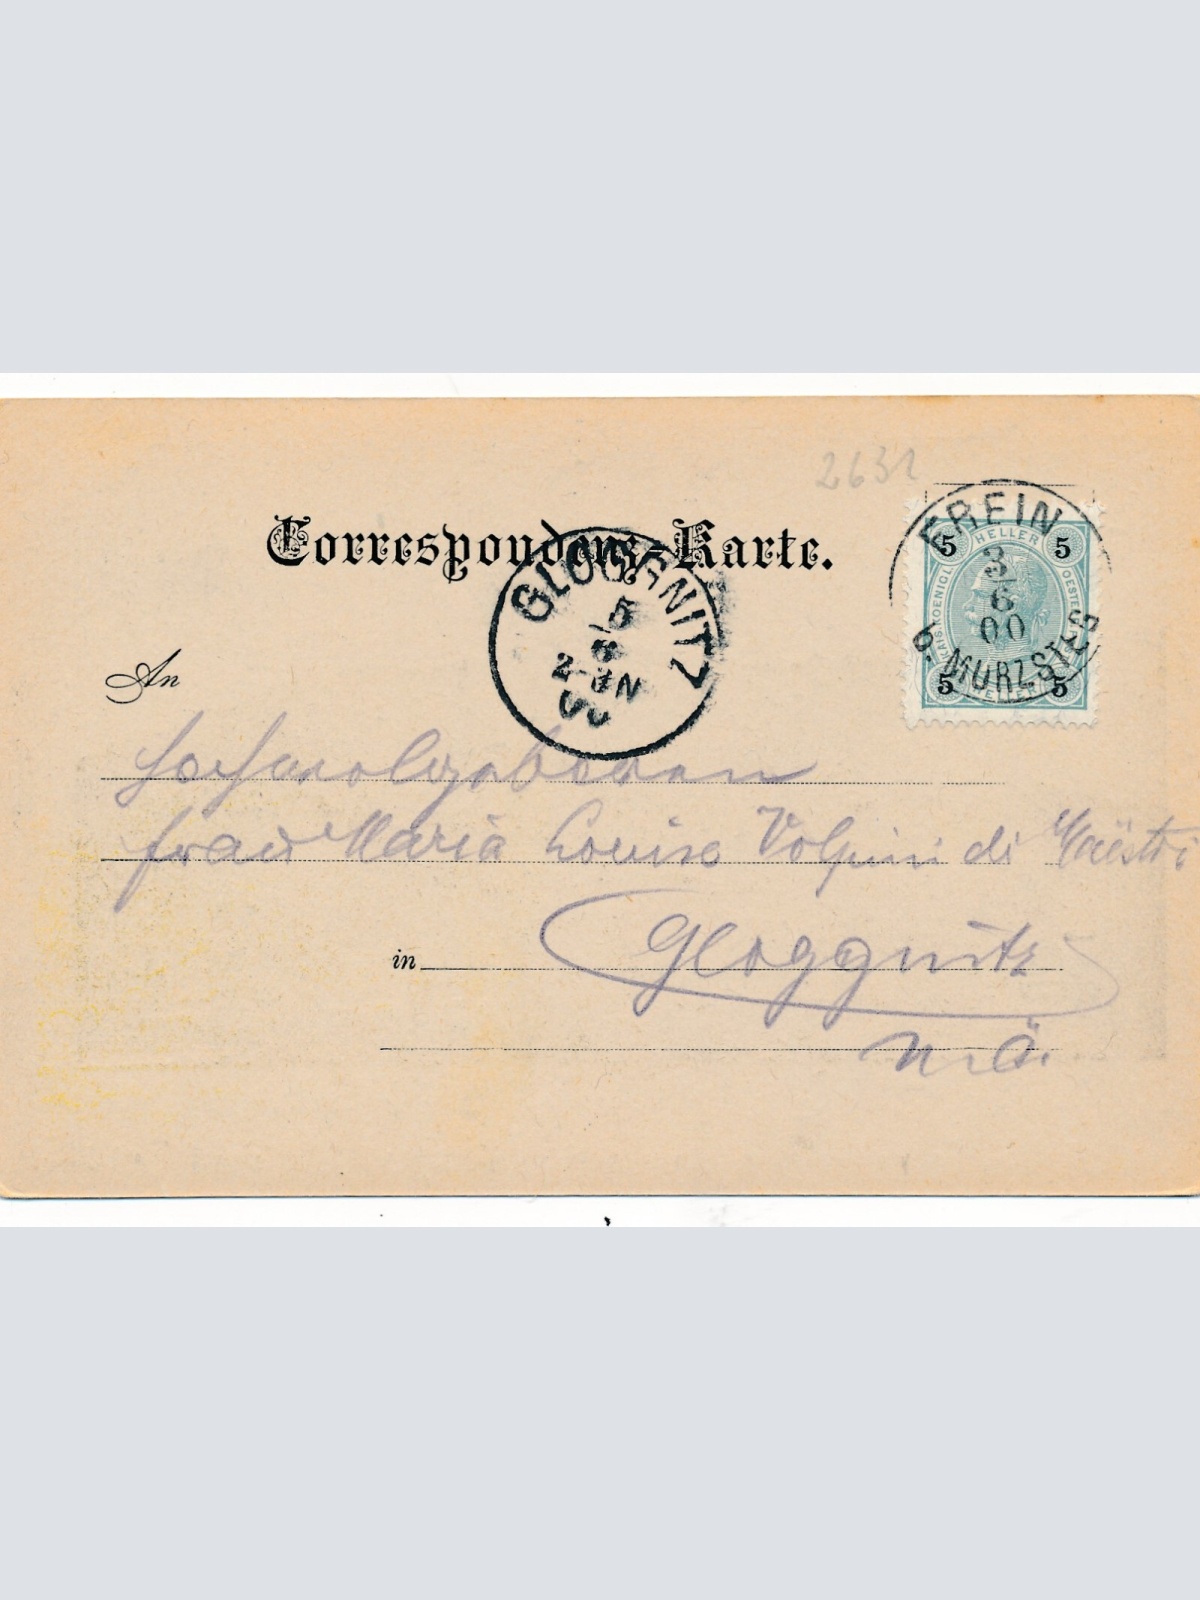 2631
Correspondenz-Karte.
FREIN
b. MÜRZSTEG
3
6
00
5 HELLER 5
KAIS. KOENIGL.
5 HELLER 5
GLOGGNITZ
5
6
2-
N
00
An
Hochwolgeboren
Frau Maria Louise Volpini di
in Gloggnitz
N. Ö.